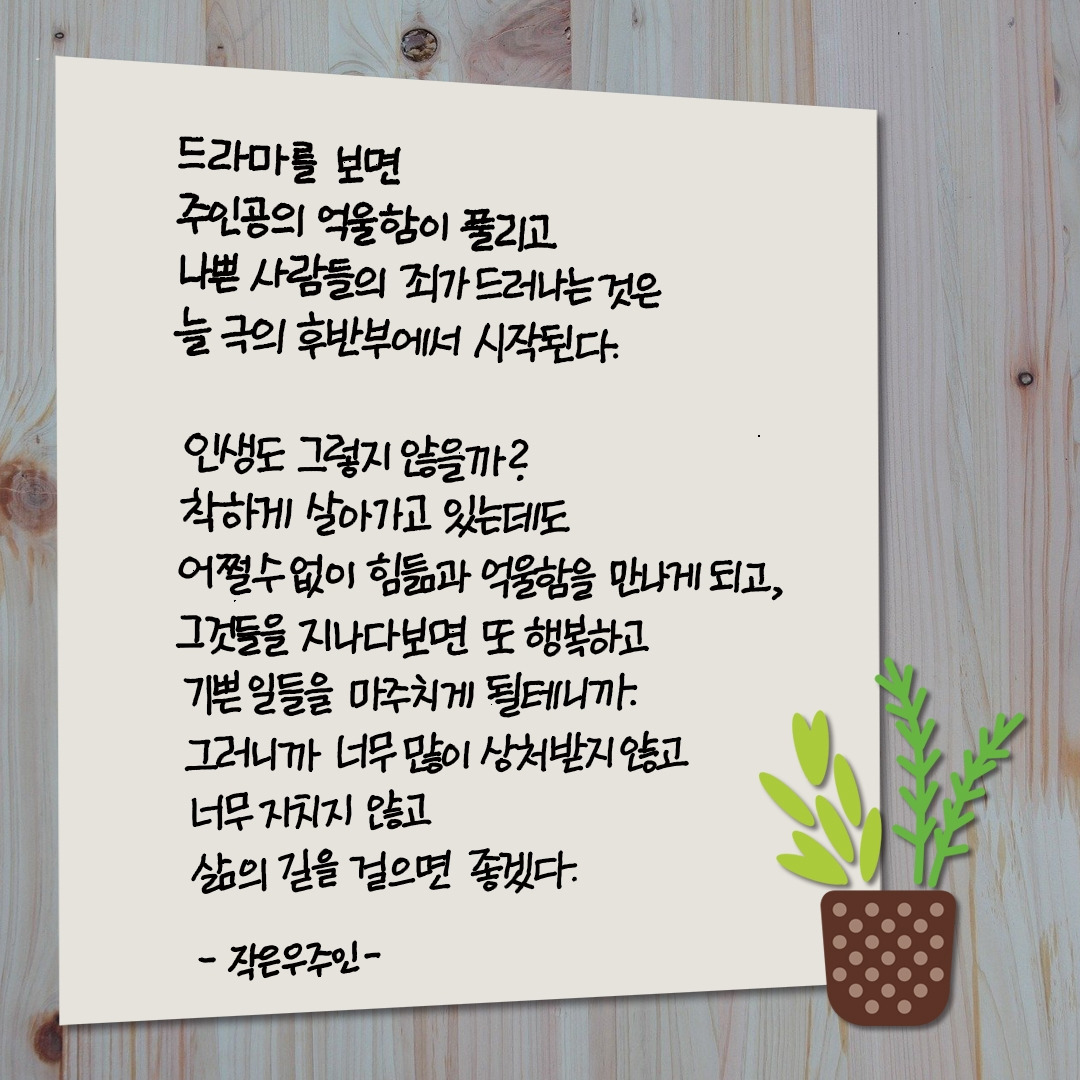 드라마를 보면
주인공의 억울함이 풀리고
나쁜 사람들의 죄가 드러나는 것은
늘 극의 후반부에서 시작된다.
인생도 그렇지 않을까?
착하게 살아가고 있는데도
어쩔 수 없이 힘듦과 억울함을 만나게 되고,
그것들을 지나다보면 또 행복하고
기쁜 일들을 마주치게 될테니까.
그러니까 너무 많이 상처받지 않고
너무 지치지 않고
삶의 길을 걸으면 좋겠다.
- 작은우주인 -